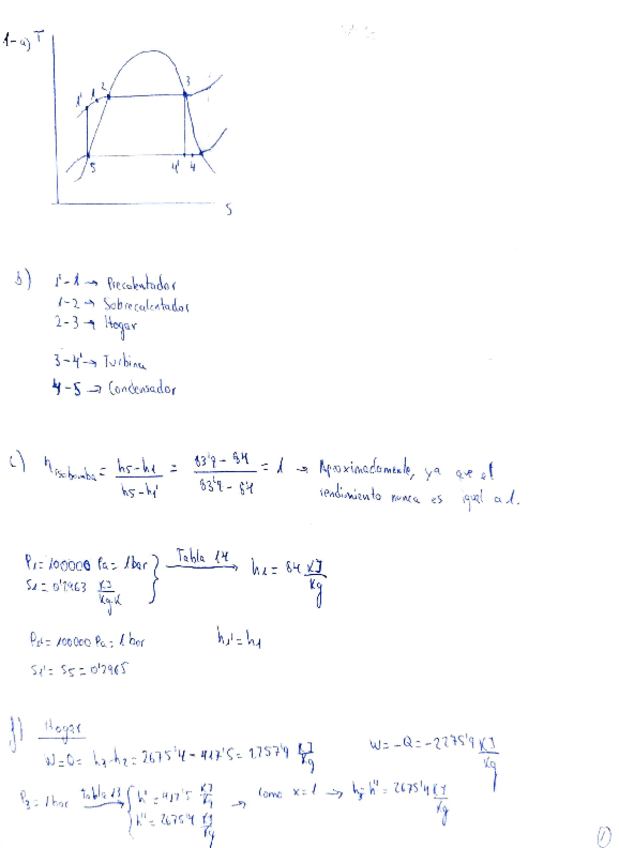 1-a) T
1' 1 2 3
5 4' 4
S
b) 1'-1 → Precalentador
1-2 → Sobrecalentador
2-3 → Hogar
3-4' → Turbina
4-5 → Condensador
c) η isobomba = h5-h1 / h5-h1' = 83'9 - 84 / 83'9 - 84 = 1 → Aproximadamente, ya que el
rendimiento nunca es igual a 1.
P1 = 100000 Pa = 1 bar
S1 = 0'2963 KJ/Kg·K } Tabla 14 → h1 = 84 KJ/Kg
P1' = 100000 Pa = 1 bar h1' = h1
S1' = S5 = 0'2965
Hogar
W=0= h3-h2 = 2675'4 - 417'5 = 2257'9 KJ/Kg W = -Q = -2275'9 KJ/Kg
P3 = 1 bar Tabla 13 → { h' = 417'5 KJ/Kg → como x=1 → h3 = h'' = 2675'4 KJ/Kg
h'' = 2675'4 KJ/Kg
1